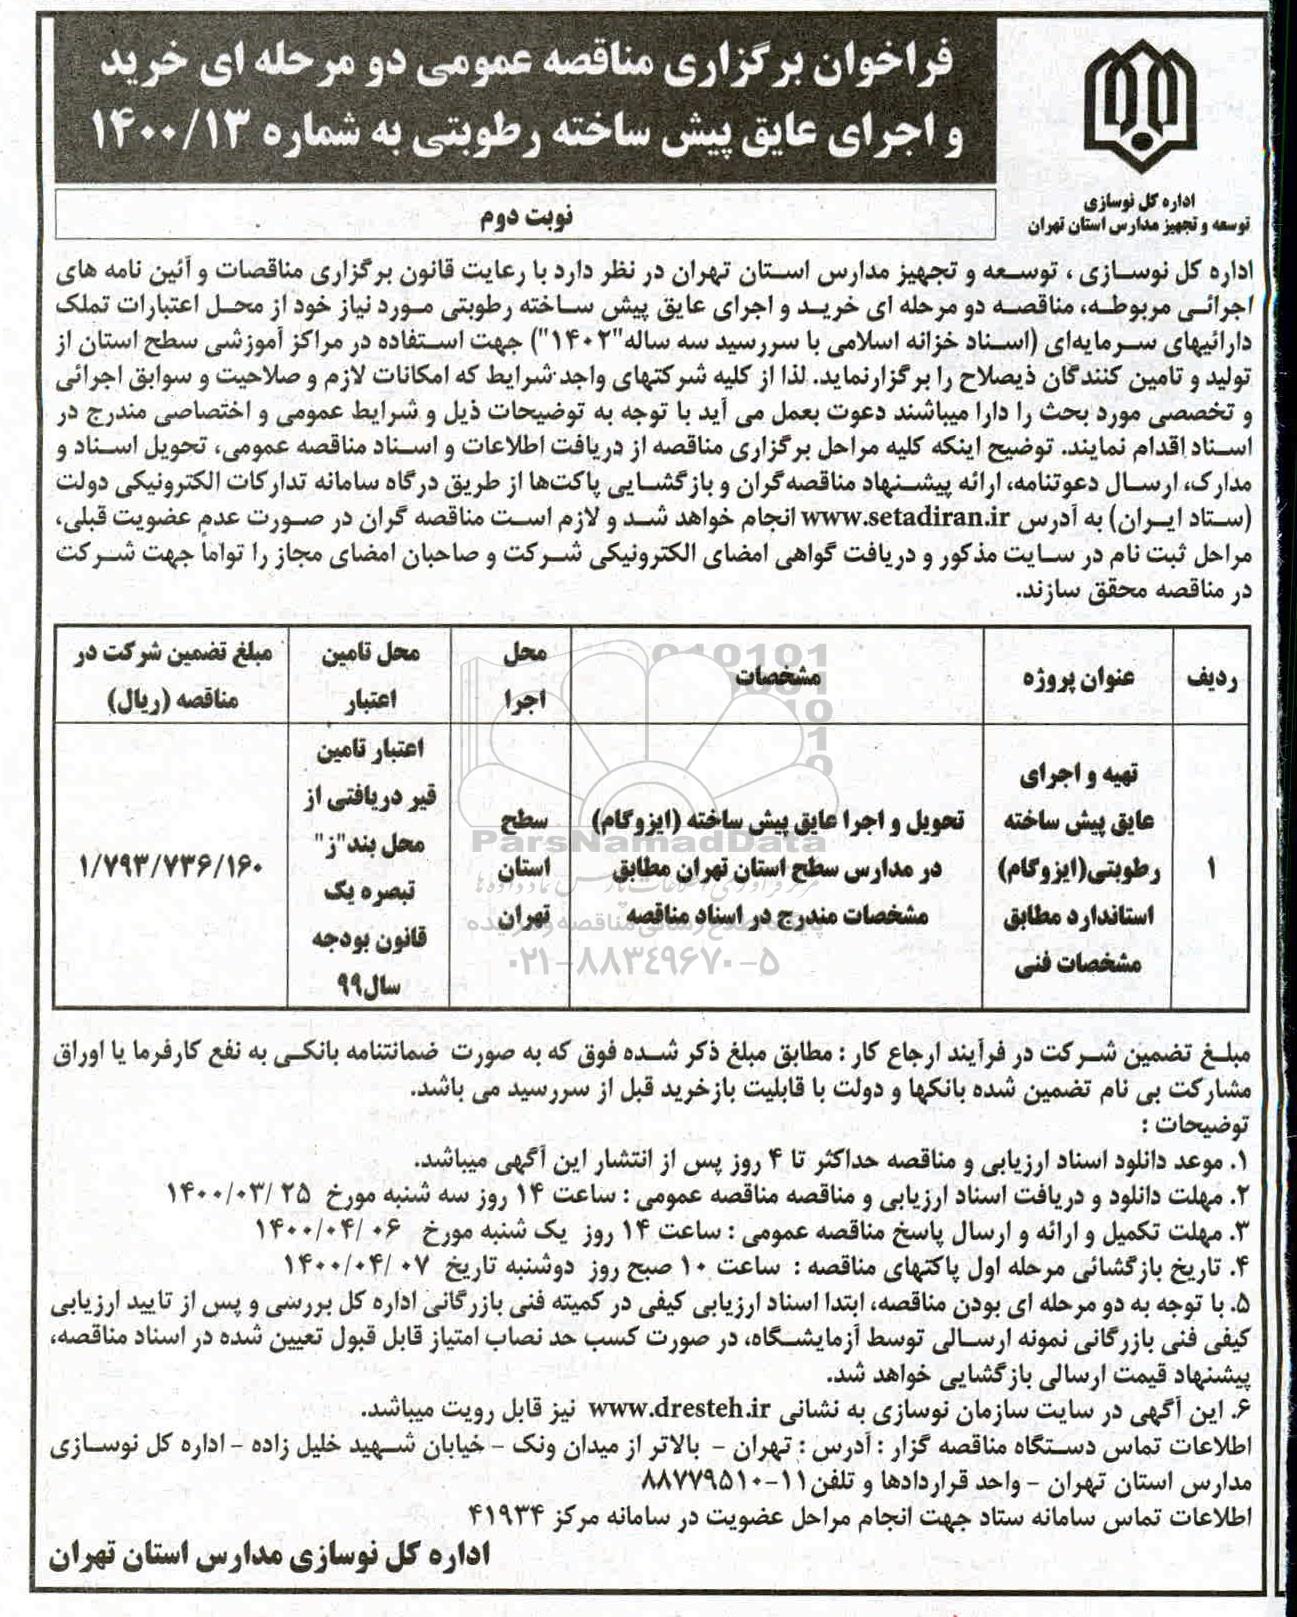 فراخوان برگزاری مناقصه عمومی دو مرحله ای خرید
و اجرای عایق پیش ساخته رطوبتی به شماره ۱۴۰۰/۱۳
اداره کل نوسازی
توسعه و تجهیز مدارس استان تهران
نوبت دوم
اداره کل نوسازی ، توسعه و تجهیز مدارس استان تهران در نظر دارد با رعایت قانون برگزاری مناقصات و آئین نامه های
اجرائی مربوطه، مناقصه دو مرحله ای خرید و اجرای عایق پیش ساخته رطوبتی مورد نیاز خود از محل اعتبارات تملک
دارائیهای سرمایه‌ای (اسناد خزانه اسلامی با سررسید سه ساله"۱۴۰۲") جهت استفاده در مراکز آموزشی سطح استان از
تولید و تامین کنندگان ذیصلاح را برگزارنماید. لذا از کلیه شرکتهای واجد شرایط که امکانات لازم و صلاحیت و سوابق اجرائی
و تخصصی مورد بحث را دارا میباشند دعوت بعمل می آید با توجه به توضیحات ذیل و شرایط عمومی و اختصاصی مندرج در
اسناد اقدام نمایند. توضیح اینکه کلیه مراحل برگزاری مناقصه از دریافت اطلاعات و اسناد مناقصه عمومی، تحویل اسناد و
مدارک، ارسال دعوتنامه، ارائه پیشنهاد مناقصه‌گران و بازگشایی پاکت‌ها از طریق درگاه سامانه تدارکات الکترونیکی دولت
(ستاد ایران) به آدرس www.setadiran.ir انجام خواهد شد و لازم است مناقصه گران در صورت عدم عضویت قبلی،
مراحل ثبت نام در سایت مذکور و دریافت گواهی امضای الکترونیکی شرکت و صاحبان امضای مجاز را تواماً جهت شرکت
در مناقصه محقق سازند.
ردیف
عنوان پروژه
مشخصات
محل
اجرا
محل تامین
اعتبار
مبلغ تضمین شرکت در
مناقصه (ریال)
۱
تهیه و اجرای
عایق پیش ساخته
رطوبتی(ایزوگام)
استاندارد مطابق
مشخصات فنی
تحویل و اجرا عایق پیش ساخته (ایزوگام)
در مدارس سطح استان تهران مطابق
مشخصات مندرج در اسناد مناقصه
سطح
استان
تهران
اعتبار تامین
قیر دریافتی از
محل بند"ز"
تبصره یک
قانون بودجه
سال۹۹
۱/۷۹۳/۷۳۶/۱۶۰
ParsNamadData
۰۲۱-۸۸۳۴۹۶۷۰-۵
مبلغ تضمین شرکت در فرآیند ارجاع کار : مطابق مبلغ ذکر شده فوق که به صورت ضمانتنامه بانکی به نفع کارفرما یا اوراق
مشارکت بی نام تضمین شده بانکها و دولت با قابلیت بازخرید قبل از سررسید می باشد.
توضیحات :
۱. موعد دانلود اسناد ارزیابی و مناقصه حداکثر تا ۴ روز پس از انتشار این آگهی میباشد.
۲. مهلت دانلود و دریافت اسناد ارزیابی و مناقصه مناقصه عمومی : ساعت ۱۴ روز سه شنبه مورخ ۲۵ /۱۴۰۰/۰۳
۳. مهلت تکمیل و ارائه و ارسال پاسخ مناقصه عمومی : ساعت ۱۴ روز یک شنبه مورخ ۰۶ /۱۴۰۰/۰۴
۴. تاریخ بازگشائی مرحله اول پاکتهای مناقصه : ساعت ۱۰ صبح روز دوشنبه تاریخ ۰۷ /۱۴۰۰/۰۴
۵. با توجه به دو مرحله ای بودن مناقصه، ابتدا اسناد ارزیابی کیفی در کمیته فنی بازرگانی اداره کل بررسی و پس از تایید ارزیابی
کیفی فنی بازرگانی نمونه ارسالی توسط آزمایشگاه، در صورت کسب حد نصاب امتیاز قابل قبول تعیین شده در اسناد مناقصه،
پیشنهاد قیمت ارسالی بازگشایی خواهد شد.
۶. این آگهی در سایت سازمان نوسازی به نشانی www.dresteh.ir نیز قابل رویت میباشد.
اطلاعات تماس دستگاه مناقصه گزار : آدرس : تهران - بالاتر از میدان ونک - خیابان شهید خلیل زاده - اداره کل نوسازی
مدارس استان تهران - واحد قراردادها و تلفن۱۱-۸۸۷۷۹۵۱۰
اطلاعات تماس سامانه ستاد جهت انجام مراحل عضویت در سامانه مرکز ۴۱۹۳۴
اداره کل نوسازی مدارس استان تهران